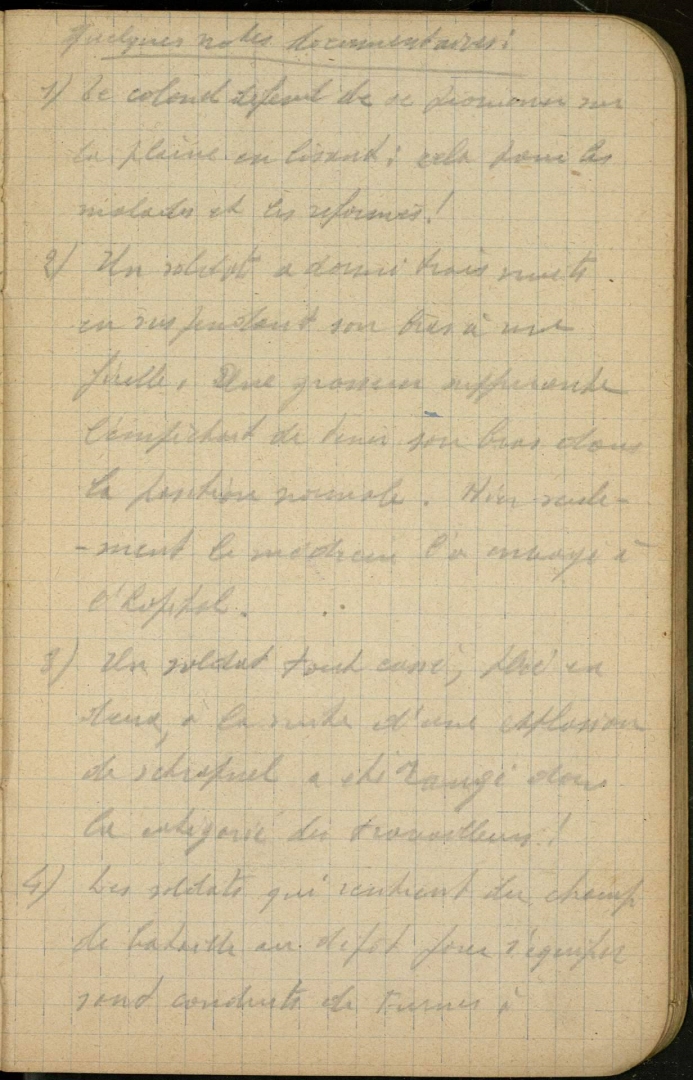 Quelques notes documentaires:
1) Le colonel défend de se promener sur
la plaine en lisant; cela pour les
malades et les réformés!
2) Un soldat a dormi trois nuits
en suspendant son bras à une
ficelle. Une grosseur suppurante
l'empêchait de tenir son bras dans
la position normale. Hier seule-
-ment le médecin l'a envoyé à
l'hôpital.
3) Un soldat tout cassé, plié en
deux, à la suite d'une explosion
de schrapnel a été rangé dans
la catégorie des travailleurs!
4) Les soldats qui rentrent du champ
de bataille au dépôt pour s'équiper
sont conduits de à